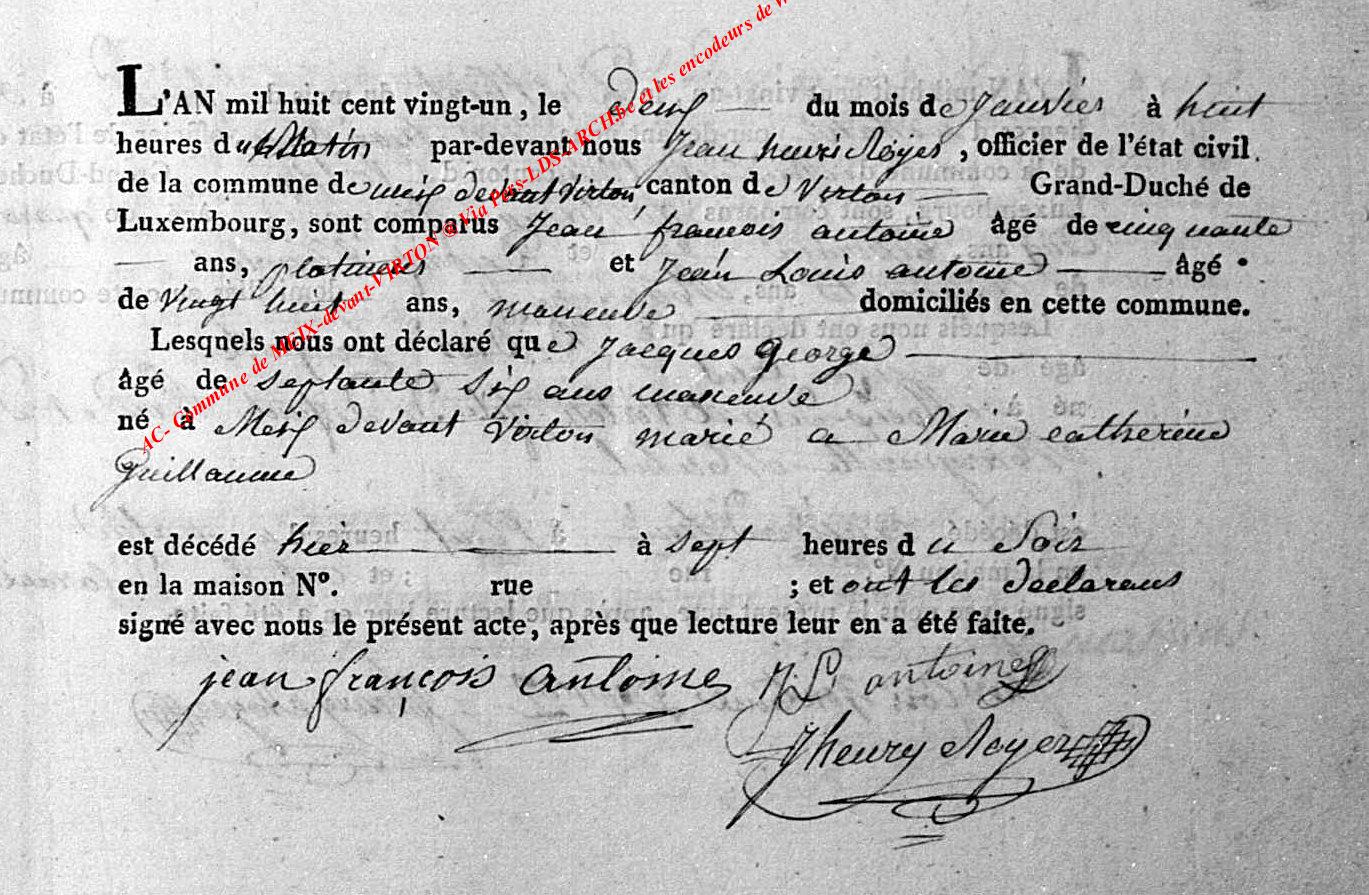 AC- Commune de MEIX-devant-VIRTON @ Via Pers-LDS-ARCH.be et les encodeurs de
L'AN mil huit cent vingt-un, le deux du mois de janvier à huit
heures du Matin par-devant nous Jean henri Royer, officier de l'état civil
de la commune de meix devant Virton, canton de Virton Grand-Duché de
Luxembourg, sont comparus Jean francois antoine âgé de cinquante
ans, platineur et Jean Louis antoine âgé
de vingt huit ans, maneuve domiciliés en cette commune.
Lesquels nous ont déclaré que Jacques George
âgé de septante six ans maneuve
né à Meix devant Virton marié a Marie catherine
Guillaume
est décédé hier à sept heures du Soir
en la maison Nº. rue ; et ont les declarans
signé avec nous le présent acte, après que lecture leur en a été faite.
jean françois antoine J L antoine
J henry Royer